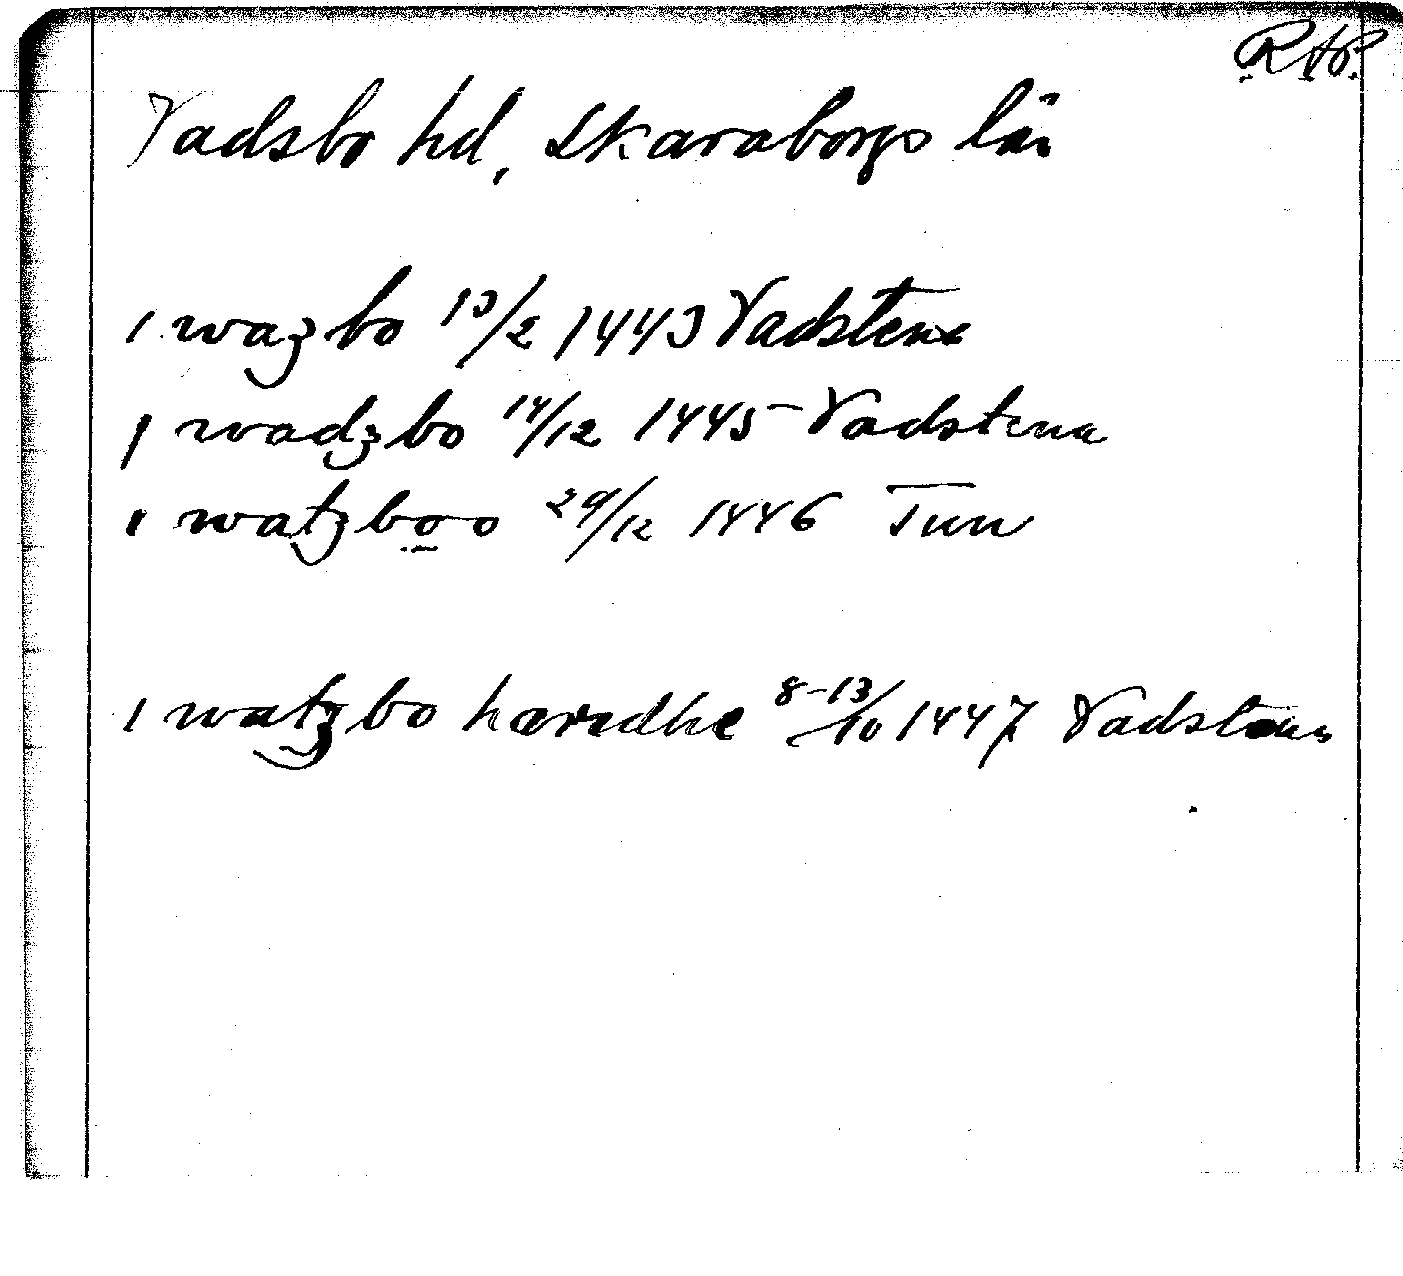 RAP.
Vadsbo hd, Skaraborgs län
i wazbo 13/2 1443 Vadstena
i wadzbo 14/12 1445 Vadstena
i watzboo 29/12 1446 Tun
i watzbo häredhe 8-13/10 1447 Vadstena